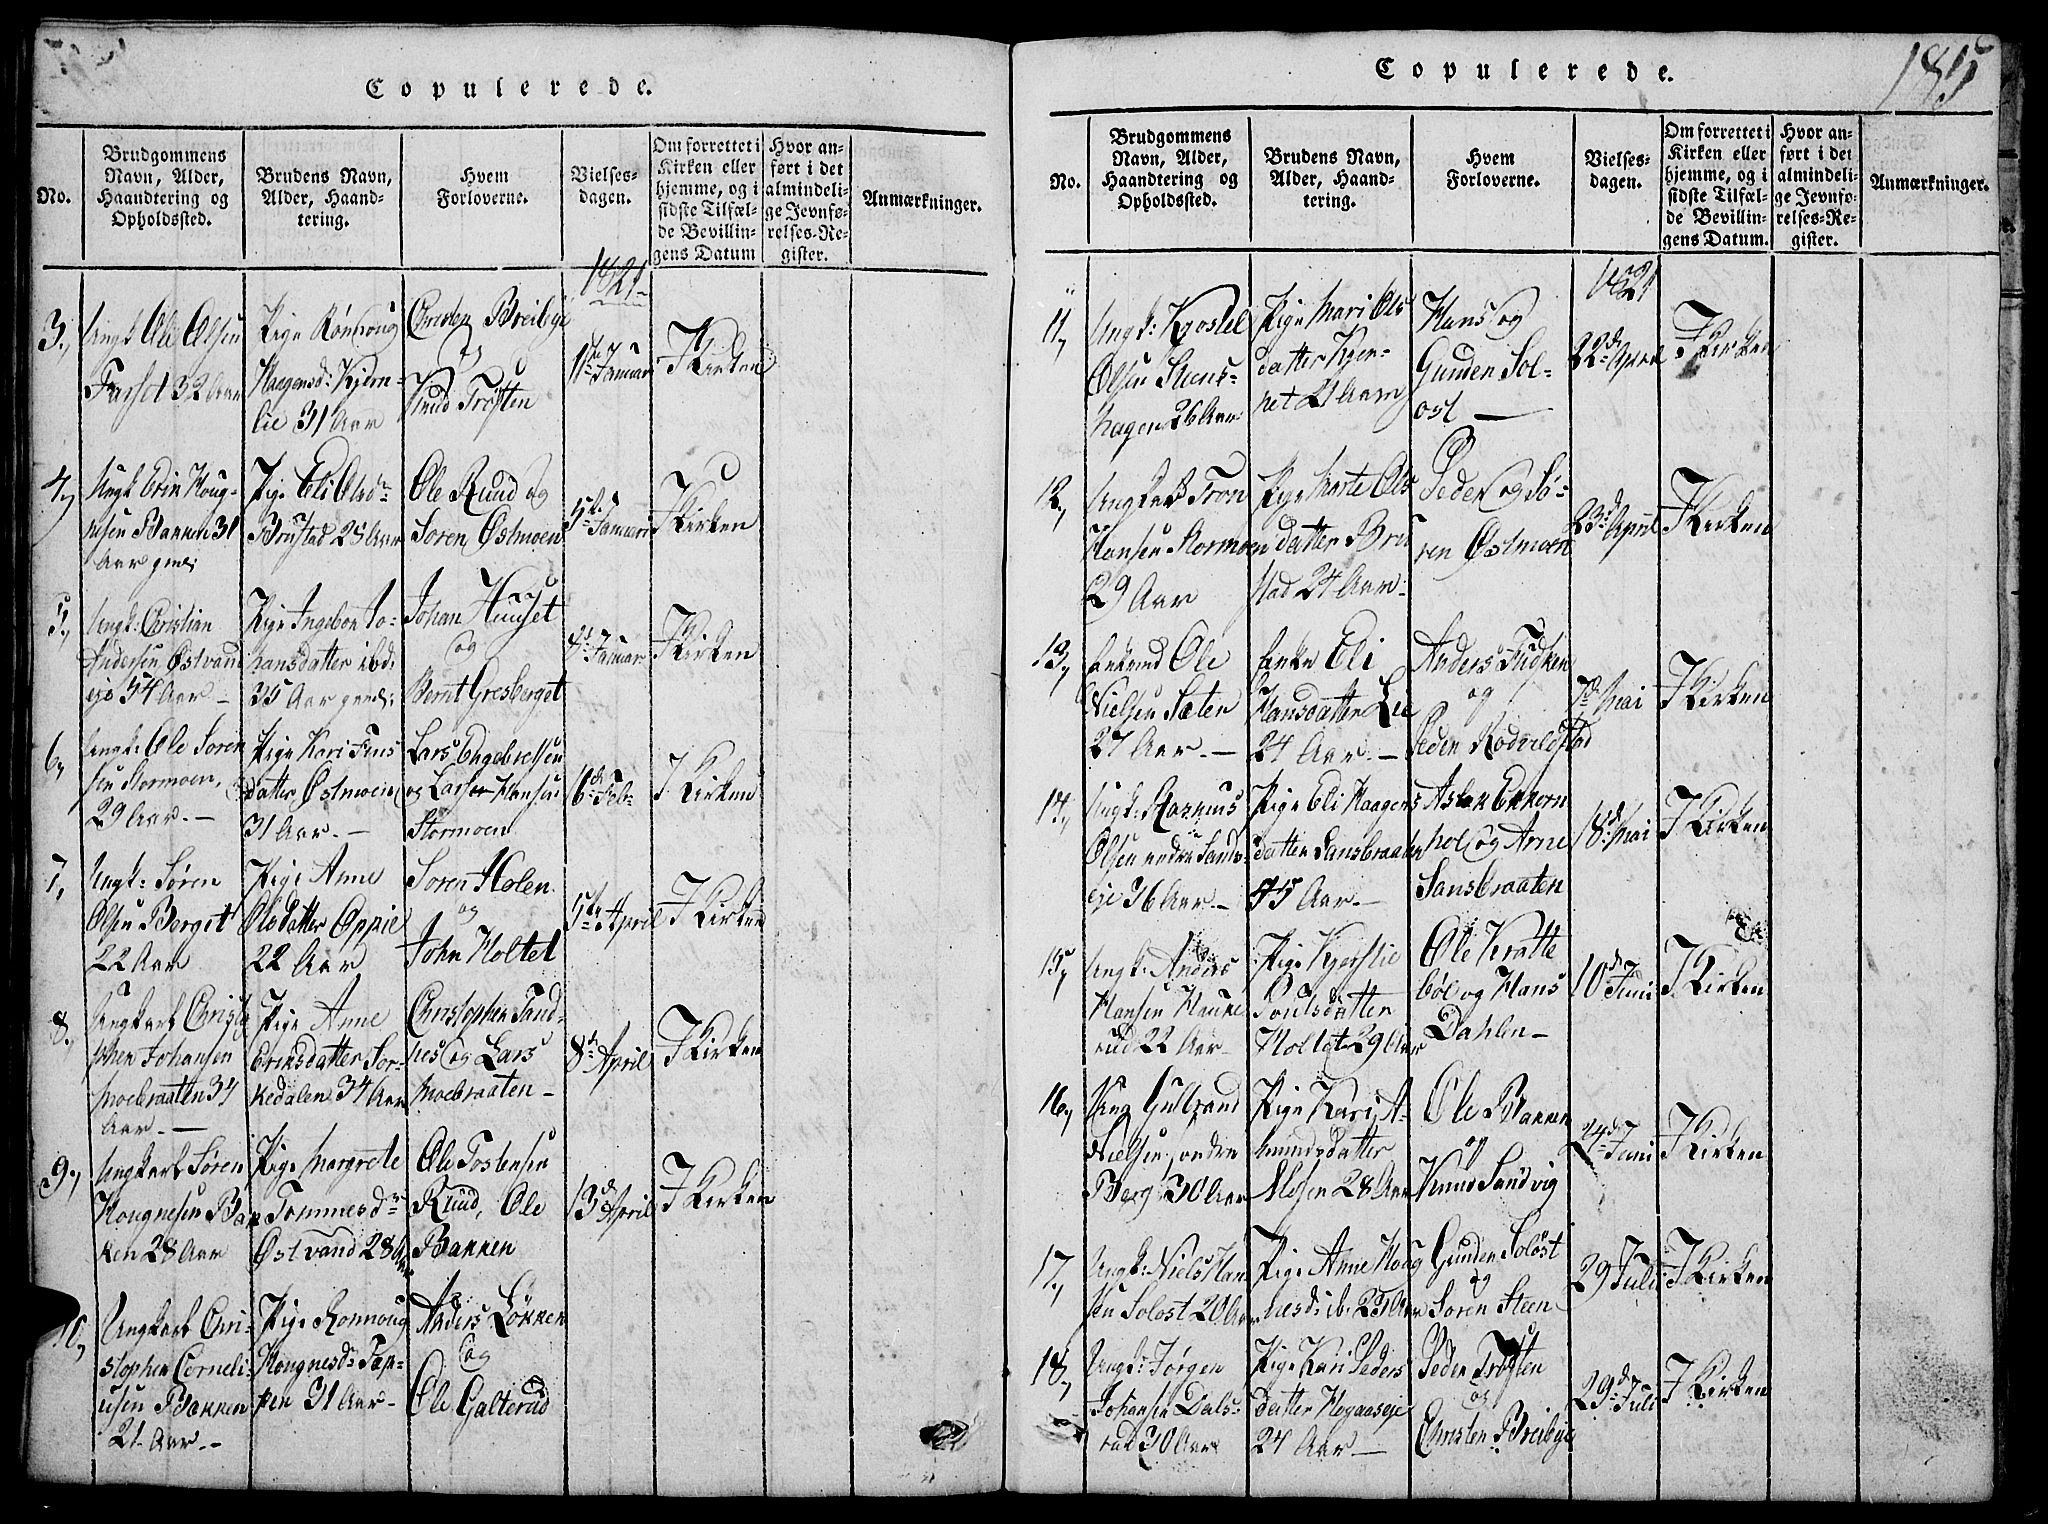 Copulerede.
No.
Brudgommens
Navn, Alder,
Haandtering og
Opholdssted.
Brudens Navn,
Alder, Haand-
tering.
Hvem
Forloverne.
Vielses-
dagen.
Om forrettet i
Kirken eller
hjemme, og i
sidste Tilfæl-
de Bevillin-
gens Datum
Hvor an-
ført i det
almindeli-
ge Jevnfø-
relses-Re-
gister.
Anmærkninger.
1821
3.,
Ungk Ole Olsen
Farset 32 Aar
Pige Rønnoug
Haagensd: Kjern-
lie 31 Aar
Christen Breibye
og
Knud Trøften
1te Januari
I Kirken
4,
Ungk Erik Houg-
nesen Bakken 31
Aar gml:
Pige Eli Olsdr
Brustad 25 Aar
Ole Ruud og
Soren Østmoen
5te Januari
I Kirken
5,
Ungk: Christian
Andersen Østvand
eje 34 Aar –
Pige Ingebor Jo-
hansdatter ibd:
35 Aar gml:
Johan Huuset
og
Bernt Gresberget
Januar
I Kirken
6,
Ungk: Ole Soren
sen Stormoen,
29 Aar. –
Pige Kari Fins
datter Østmoen
31 Aar. –
Lars Engebretsen
og Larsen Hansen
Stormoen
6de Feb:
I Kirken
7,
Ungk: Søren
Olsen Berget
22 Aar
Pige Anne
Olsdatter Oppie
22 Aar
Soren Holen
og
John Holtet
5te April
I Kirken
8,
Ungkarl Christo
pher Johansen
Moebraaten 34
Aar. –
Pige Anne
Eriksdatter Sor-
kedalen 34 Aar
Christopher Sand-
nes og Lars
Moebraaten –
8de April
I Kirken
9,
Ungkarl Søren
Hougnesen Bak
ken 28 Aar
Pige Margrete
Tommesdr
Østvand 28 Aar
Ole Tostensen
Ruud, Ole
Bakken
13de April
I Kirken
10,
Ungkarl Chri-
stopher Corneli-
usen Bakken
21 Aar. –
Pige Ronnoug
Hougnesd: Tap-
pen 31 Aar –
Anders Løkken
og
Ole Galterud
Copulerede.
185
No.
Brudgommens
Navn, Alder,
Haandtering og
Opholdssted.
Brudens Navn,
Alder, Haand-
tering.
Hvem
Forloverne.
Vielses-
dagen.
Om forrettet i
Kirken eller
hjemme, og i
sidste Tilfæl-
de Bevillin-
gens Datum.
Hvor an-
ført i det
almindeli-
ge Jevnfø-
relses-Re-
gister.
Anmærkninger.
1821
11,
Ungk: Kjostel
Olsen Steens-
hagen 26 Aar
Pige Mari Ols
datter Kjer-
net 21 Aar
Hans og
Gunder Sol-
ost —
22de April
I Kirken
12,
Ungkarl Tron
Hansen Stormoen
29 Aar
Pige Marte Ols
datter Bru
stad 24 Aar.
Peder og Sø-
ren Østmoen
23de April
I Kirken
13,
Enkemd Ole
Nielsen Sæter
27 Aar. –
Enke Eli
Hansdatter Lie
24 Aar. –
Anders
og
Peder Rodveldstad
7de Mai
I Kirken
14,
Ungk: Rasmus
Olsen nedre Sands-
eje 36 Aar –
Pige Eli Haagens
datter Sansbraaten
45 Aar –
Aslak Ekorn
hol og Arne
Sansbraaten
18de Mai
I Kirken
15,
Ungk: Anders
Hansen Hauke
rud 22 Aar –
Pige Kjerstie
Poulsdatter
Holtet 29 Aar
Ole Kratte
bøl og Hans
Dahlen –
10de Juni
I Kirken
16,
Ung Gulbrand
Nielsen, ondre
Berg 30 Aar
Pige Kari A-
mundsdatter
Mosen 28 Aar
Ole Bakken
og
Knud Sandvig
24de Juni
I Kirken
17,
Ungk: Niels Han
sen Solost 20 Aar
Pige Anne Houg
nesd: ib. 25 Aar
Gunder Soløst
og
Soren Steen
29 Juli
I Kirken
18,
Ungk: Jørgen
Johansen Dals-
rud 30 Aar
Pige Kari Peders
datter Hegaaseje
24 Aar –
Peder Trøften
og
Christen Breibye
29de Juli
I Kirken